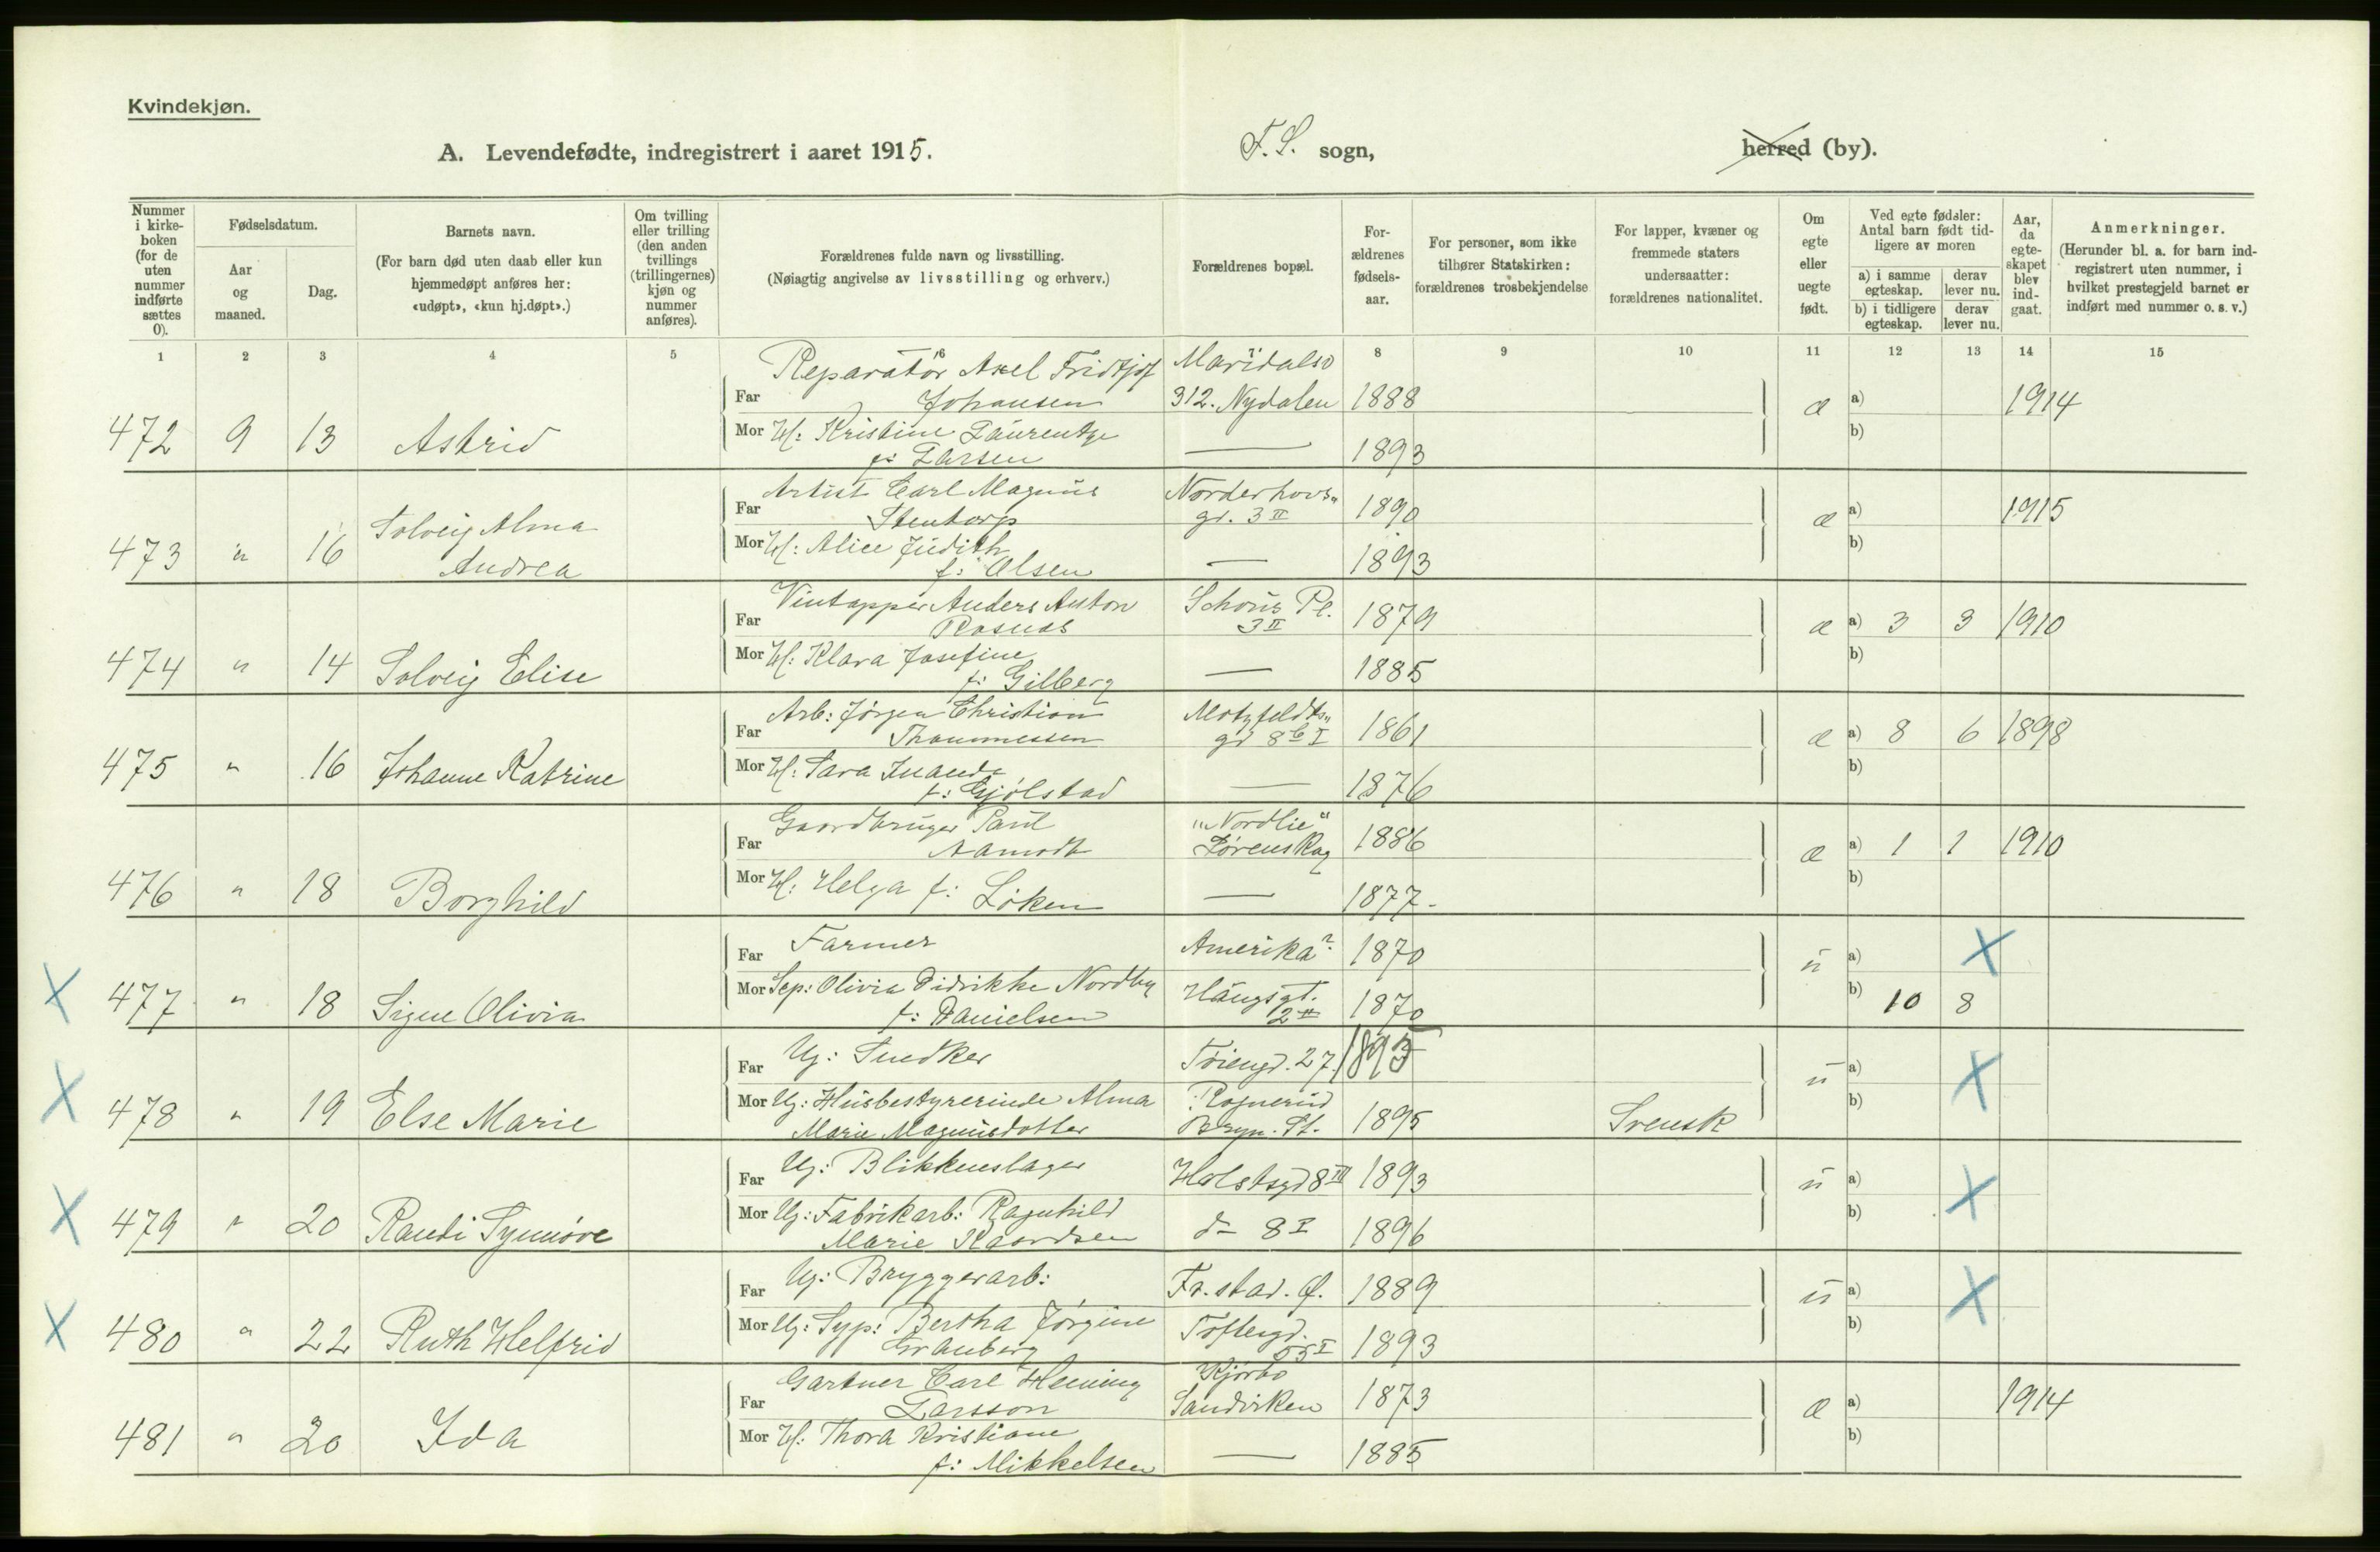 Kvindekjøn.
A. Levendefødte, indregistrert i aaret 1915.
F. S. sogn,
herred (by).
Nummer i kirkeboken (for de uten nummer indførte sættes 0).
Fødselsdatum.
Aar og maaned.
Dag.
Barnets navn.
(For barn død uten daab eller kun hjemmedøpt anføres her: «udøpt», «kun hj.døpt».)
Om tvilling eller trilling (den anden tvillings (trillingernes) kjøn og nummer anføres).
Forældrenes fulde navn og livsstilling.
(Nøiagtig angivelse av livsstilling og erhverv.)
Forældrenes bopæl.
Forældrenes fødselsaar.
For personer, som ikke tilhører Statskirken: forældrenes trosbekjendelse
For lapper, kvæner og fremmede staters undersaatter: forældrenes nationalitet.
Om egte eller uegte født.
Ved egte fødsler: Antal barn født tidligere av moren
a) i samme egteskap.
derav lever nu.
b) i tidligere egteskap.
derav lever nu.
Aar, da egteskapet blev indgaat.
Anmerkninger.
(Herunder bl. a. for barn indregistrert uten nummer, i hvilket prestegjeld barnet er indført med nummer o. s. v.)
1 2 3 4 5 6 7 8 9 10 11 12 13 14 15
Reparatör Axel Fridtjof Maridalsv
Far Johansen 312. Nydalen 1888 æ a) 1914
472 9 13 Astrid Mor H: Kristine Laurentze — b)
f: Larsen 1893
Artist Carl Magnus Norderhovs"
Far Stentorp gd. 3 II 1890 æ a) 1915
473 " 16 Solveig Alma Andrea Mor H: Alice Judith — b)
f: Olsen 1893
Vintapper Anders Anton Schous Pl.
Far Rosnes 3 II 1879 æ a) 3 3 1910
474 " 14 Solveig Elise Mor H: Klara Josefine — b)
f: Gilberg 1885
Arb: Jörgen Christian Motzfeldts"
Far Thommessen gd 8 b I 1861 æ a) 8 6 1898
475 " 16 Johanne Katrine Mor H: Sara — b)
f: Gjölstad 1876
Gaardbruger Paul "Nordlie"
Far Aamodt Lörenskog 1886 æ a) 1 1 1910
476 " 18 Borghild Mor H: Helga f: Löken — 1877 b)
Far Farmer Amerika? 1870 u a) X
X 477 " 18 Signe Olivia Mor Sep: Olivia Didrikke Nordby Haugsgt. b) 10 8
f: Danielsen 2 II 1870
Far Ug: Snedker Töiengd. 27. 1893 u a) X
X 478 " 19 Else Marie Mor Ug: Husbestyrerinde Alma Rognerud b)
Marie Magnusdotter Bryn. St. 1895 Svensk
Far Ug: Blikkenslager Holstsgd 8 III 1893 u a) X
X 479 " 20 Randi Synnöve Mor Ug: Fabrikarb: Ragnhild b)
Marie d- 8 I 1896
Far Ug: Bryggerarb: Fr.stad. Ø. 1889 u a) X
X 480 " 22 Ruth Helfrid Mor Ug: Syp: Bertha Jörgine Toftesgd. b)
Granberg 55 I 1893
Gartner Carl Henning Kjörbo
Far Larsson Sandviken 1873 æ a) 1914
481 " 20 Ida Mor H: Thora Kristiane — b)
f: Mikkelsen 1885